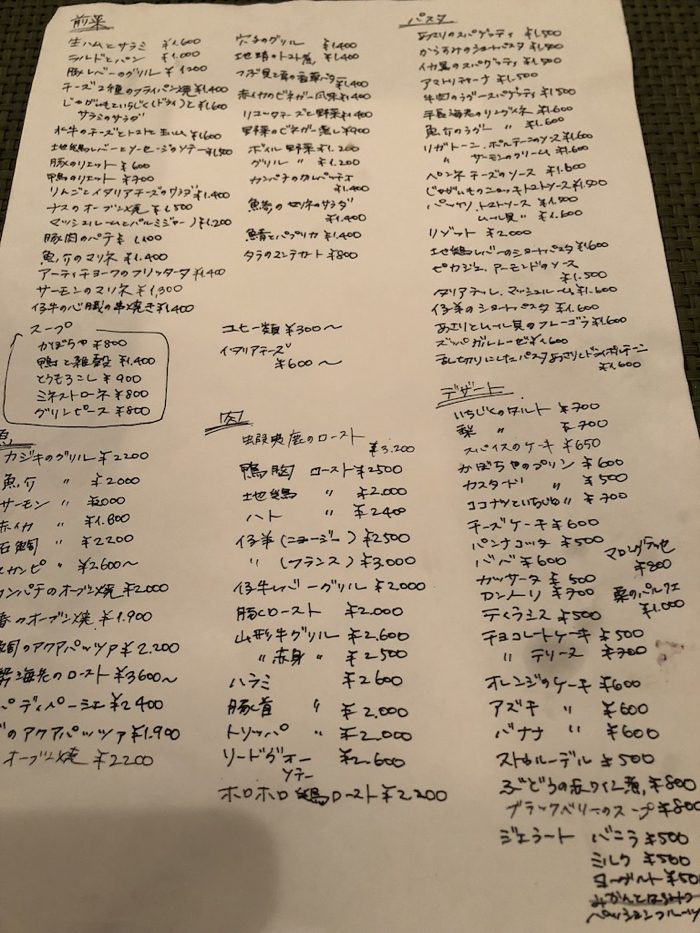 前菜
生ハムとサラミ ¥1,600
ラルドとパン ¥1,000
豚レバーのグリル ¥1200
チーズ2種のフライパン焼 ¥1,400
じゃがいもといちじく(ドライ)と ¥1,600
サラミのサラダ
水牛のチーズとトマトと生ハム ¥1,600
地鶏レバーとソーセージのソテー ¥1,500
豚のリエット ¥600
鴨のリエット ¥700
りんごとイタリアチーズのサラダ ¥1,400
ナスのオーブン焼 ¥1,500
マッシュルームとパルミジャーノ ¥1,200
豚肉のパテ ¥1,100
魚介のマリネ ¥1,400
アーティチョークのフリッタータ ¥1,400
サーモンのマリネ ¥1,300
仔牛の心臓の串焼き ¥1,400
穴子のグリル ¥1,400
地ダコのトマト煮 ¥1,400
ツブ貝と茸の香草バター ¥1,400
赤イカのビネガー風味 ¥1,400
リコッタチーズと野菜 ¥1,400
野菜のビネガー煮し ¥900
ボイル野菜 ¥1,200
グリル 〃 ¥1,200
カンパチのカルパッチョ
¥1,400
魚 のサラダ
¥1,400
魚 とパプリカ ¥1,400
タラのマンテカート ¥800
スープ
かぼちゃ ¥800
鴨と雑穀 ¥1,400
とうもろこし ¥900
ミネストローネ ¥800
グリンピース ¥800
コヒー類 ¥300〜
イタリアチーズ
¥600〜
魚
カジキのグリル ¥2200
魚介 〃 ¥2000
サーモン 〃 ¥2000
赤イカ 〃 ¥1.800
石鯛 〃 ¥2200
スカンピ 〃 ¥2600〜
カンパチのオーブン焼 ¥2000
のオーブン焼 ¥1.900
鯛のアクアパッツァ ¥2.200
海老のロースト ¥3600〜
パディペーシェ ¥2400
のアクアパッツァ ¥1.900
オーブン焼 ¥2200
肉
蝦夷鹿のロースト
¥3,200
鴨胸 ロースト ¥2500
地鶏 〃 ¥2.000
ハト 〃 ¥2400
仔羊(ニュージー) ¥2500
〃 (フランス) ¥3,000
仔牛レバーグリル ¥2,000
豚ロースト ¥2.000
山形牛グリル ¥2.600
〃 赤身 〃 ¥2500
ハラミ ¥2600
豚首 〃 ¥2.000
トリッパ 〃 ¥2.000
リードヴォー ¥2.600
ソテー
ホロホロ鶏ロースト ¥2,200
パスタ
あさりのスパゲッティ ¥1,500
からすみのショートパスタ ¥1,500
イカ墨のスパゲッティ ¥1,500
アマトリチャーナ ¥1,500
牛肉のラグースパゲッティ ¥1,500
手長海老のリングイネ ¥1,600
魚介のラグー 〃 ¥1,600
リガトーニ、ボルチーニのソース ¥1,600
〃 サーモンのクリーム ¥1,600
ペンネチーズのソース ¥1,600
じゃがいものニョッキトマトソース ¥1,500
パッケリ、トマトソース ¥1,500
ムール貝 〃 ¥1,600
リゾット ¥2.000
地鶏レバーのショートパスタ ¥1600
ピカジェ、アーモンドのソース
¥1,500
タリアテッレ、マッシュルーム ¥1,600
仔羊のショートパスタ ¥1,600
あさりとムール貝のフレーゴラ ¥1,600
ズッパガルルーゼ ¥1,600
乱切りにしたパスタあさりとドライポルチーニ
¥1,600
デザート
いちじくのタルト ¥700
梨 〃 ¥700
スパイスのケーキ ¥650
かぼちゃのプリン ¥600
カスタード 〃 ¥500
ココナツといちじく 〃 ¥700
チーズケーキ ¥600
パンナコッタ ¥500
ババ ¥600
マロングラッセ
¥800
カッサータ ¥500
カントリ ¥700
栗のパルフェ
¥1,000
ティラミス ¥500
チョコレートケーキ ¥500
〃 テリーヌ ¥700
オレンジのケーキ ¥600
アズキ 〃 ¥600
バナナ 〃 ¥600
ストゥルーデル ¥500
ぶどうの赤ワイン煮, ¥800
ブラックベリーのスープ ¥800
ジェラート バニラ ¥500
ミルク ¥500
ヨーグルト ¥50
パッションフルーツ